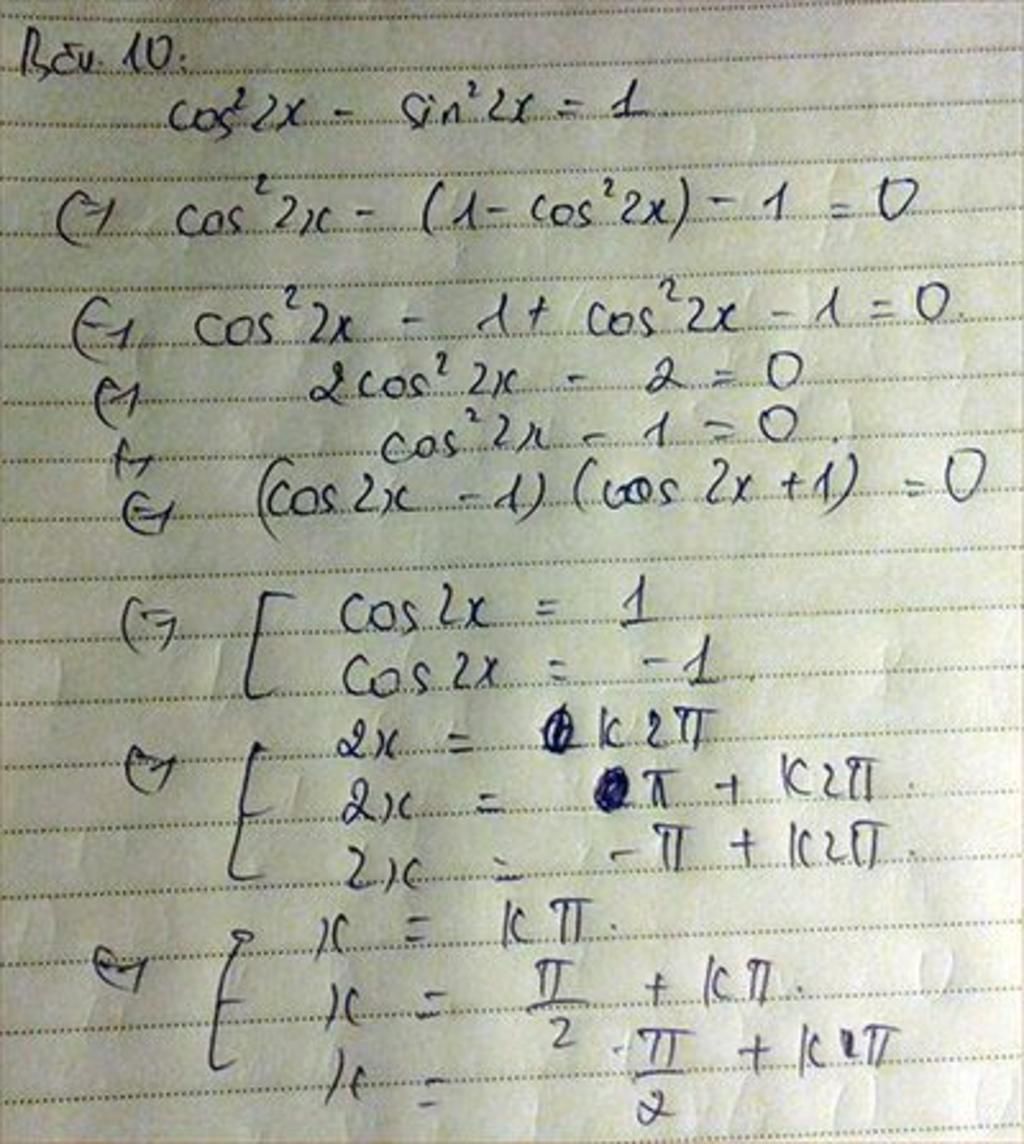 10:
cos²2x - sin²2x = 1
⇔ cos²2x - (1 - cos²2x) - 1 = 0
⇔ cos²2x - 1 + cos²2x - 1 = 0.
⇔ 2cos²2x - 2 = 0
⇔ cos²2x - 1 = 0.
⇔ (cos2x - 1)(cos 2x + 1) = 0
⇔ [ cos2x = 1
cos2x = -1
⇔ [ 2x = k2π
2x = π + k2π.
2x = -π + k2π.
⇔ [ x = kπ.
x = π/2 + kπ.
x = -π/2 + kπ